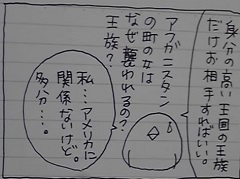 身分の高い王国の王族
だけお相手すればいい。
アフガニスタン
の町の女は
なぜ襲われるの？
王族？
私…アメリカに
関係ないけど。
多分…。